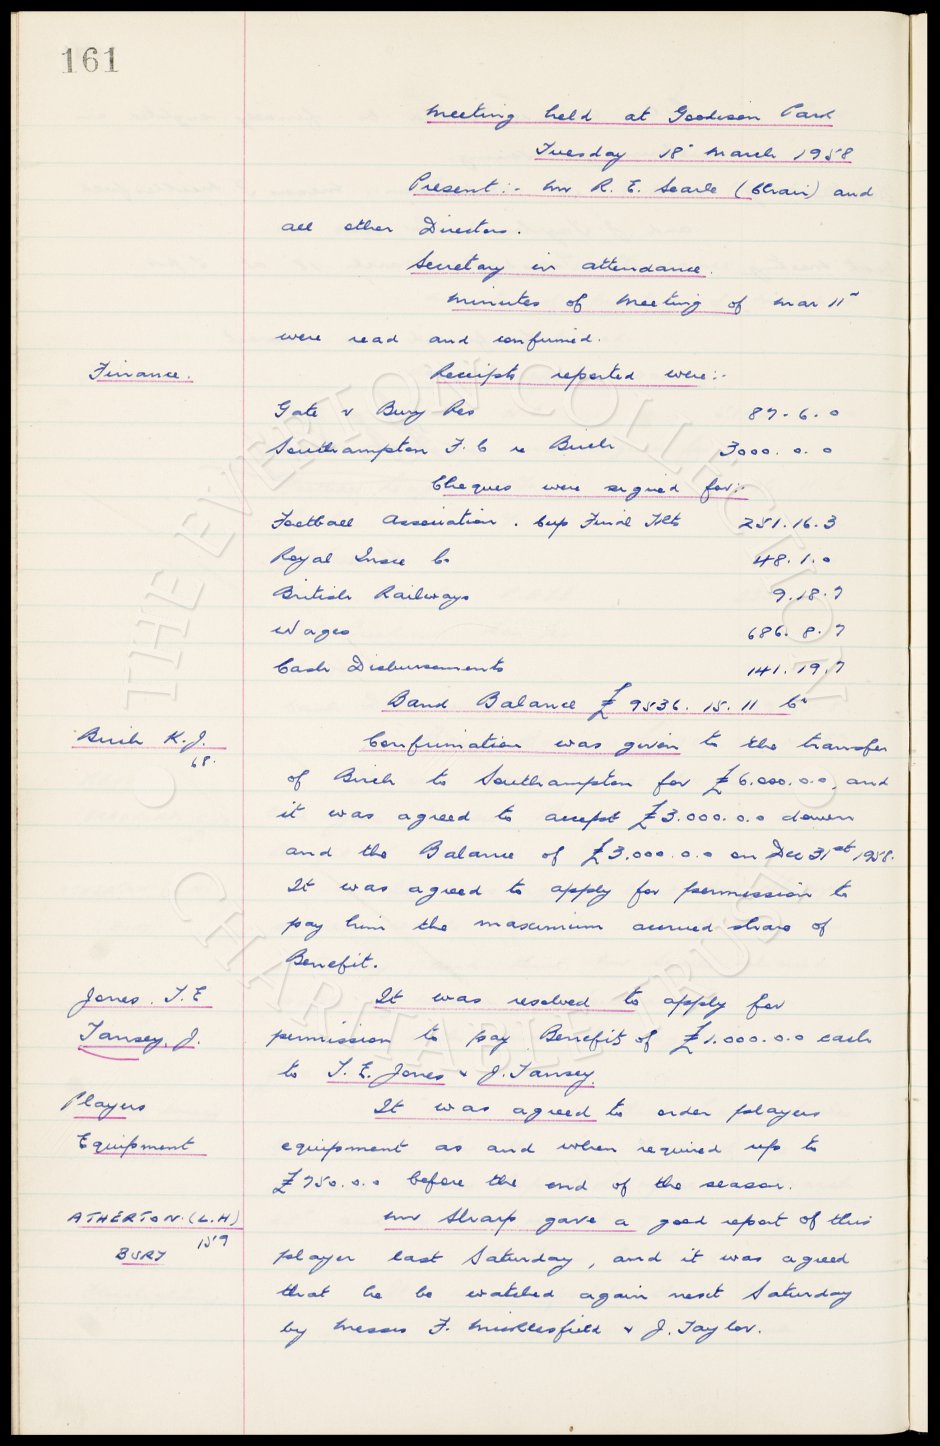 161
Meeting held at Goodison Park
Tuesday 18" March 1958
Present:- Mr R. E. Searle (Chair) and
all other Directors.
Secretary in attendance.
Minutes of Meeting of Mar 11"
were read and confirmed.
Finance. Receipts reported were:-
Gate v Bury Res 87. 6. 0
Southampton F. C re Birch 3000. 0. 0
Cheques were signed for:-
Football Association. Cup Final Tkts 251. 16. 3
Royal Insce Co 48. 1. 0
British Railways 9. 18. 7
Wages 686. 8. 7
Cash Disbursements 141. 19. 7
Bank Balance £9536. 15. 11 Cr
Birch K. J. Confirmation was given to the transfer
68. of Birch to Southampton for £6.000.0.0, and
it was agreed to accept £3.000.0.0 down
and the Balance of £3.000.0.0 on Dec 31st 1958.
It was agreed to apply for permission to
pay him the maximum accrued share of
Benefit.
Jones. T. E It was resolved to apply for
Tansey, J. permission to pay Benefits of £1.000.0.0 each
to T. E. Jones & J. Tansey.
Players It was agreed to order players
Equipment equipment as and when required up to
£750.0.0 before the end of the season.
ATHERTON. (L.H) Mr Sharp gave a good report of this
BURY 159 player last Saturday, and it was agreed
that he be watched again next Saturday
by Messrs F. Micklesfield & J. Taylor.
© THE EVERTON COLLECTION
CHARITABLE TRUST